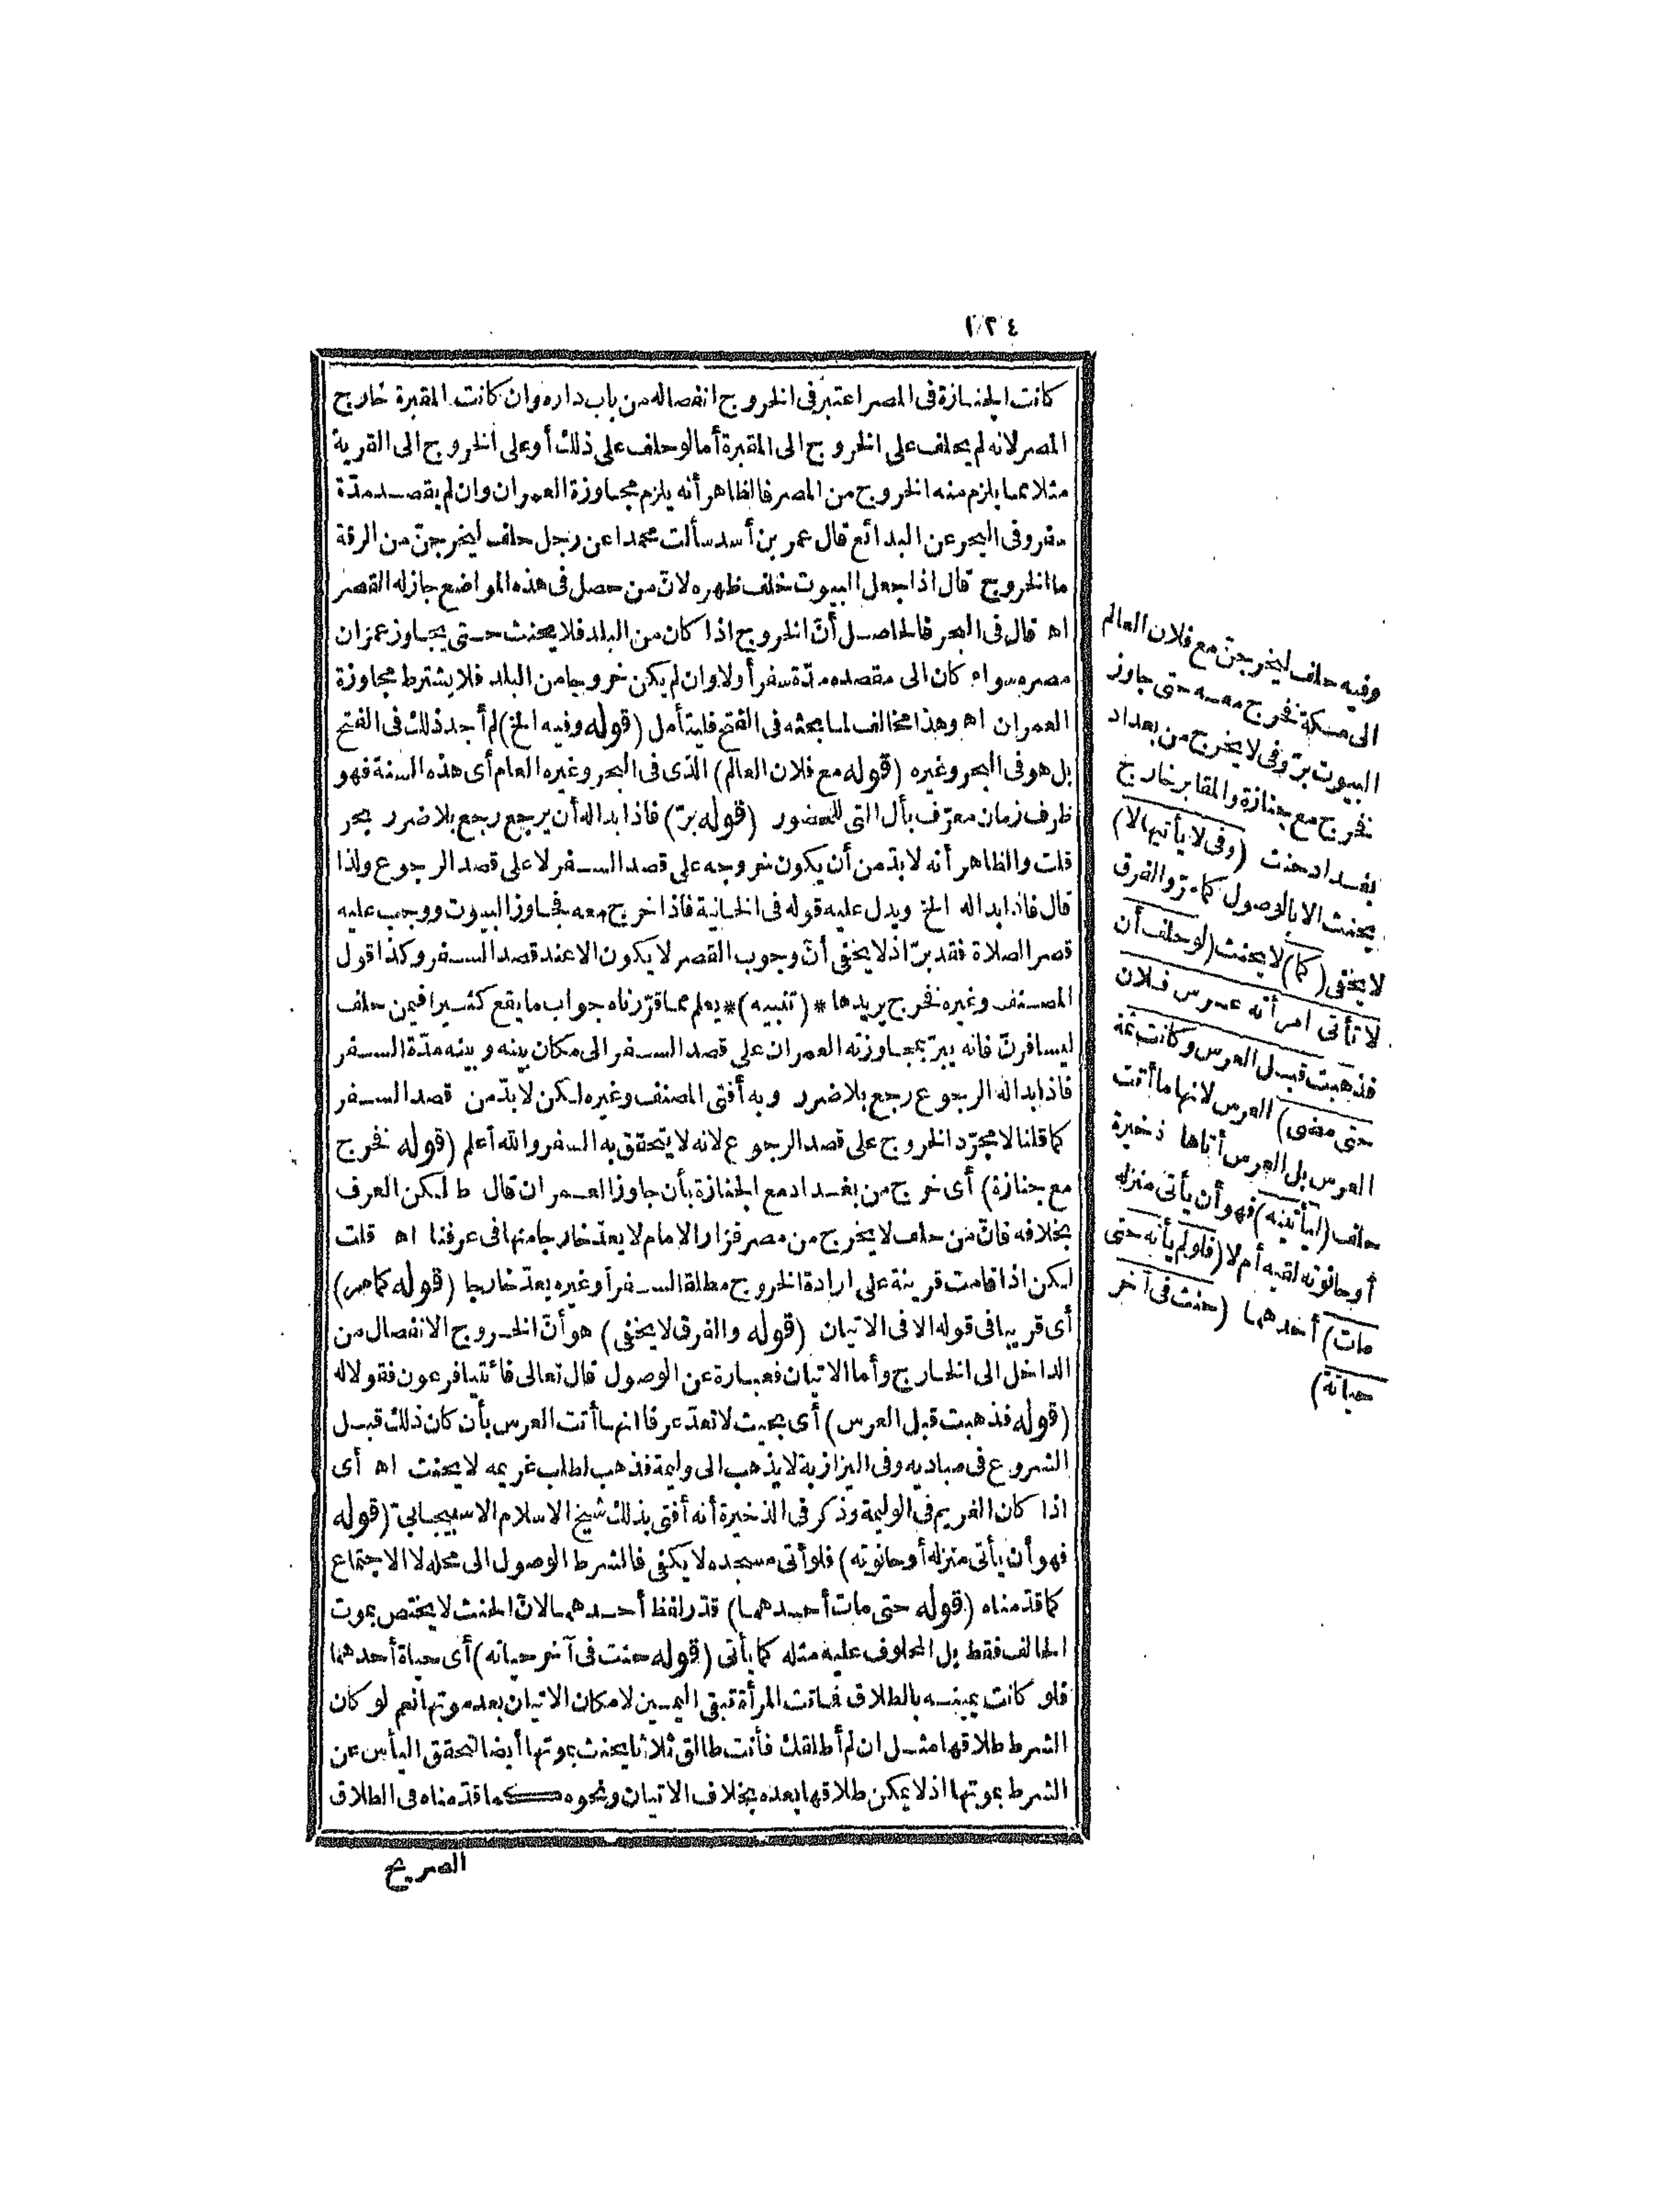 ١٣٤
كانت الجنازة فى المصر اعتبر فى الخروج انفصاله من باب داره وان كانت المقبرة خارج
المصر لانه لم يحلف على الخروج الى المقبرة أما لو حلف على ذلك أو على الخروج الى القرية
مثلا مما يلزم منه الخروج من المصر فالظاهر أنه يلزم مجاوزة العمران وان لم يقصد مدّة
سفر وفى البحر عن البدائع قال عمر بن أسد سألت محمدا عن رجل حلف ليخرجنّ من الرقة
ما الخروج قال اذا جعل البيوت خلف ظهره لانّ من حصل فى هذه المواضع جازله القصر
اه قال فى البحر فالحاصل أنّ الخروج اذا كان من البلد فلا يحنث حتى يجاوز عمران
مصره سواء كان الى مقصده مدّة سفر أولا وان لم يكن خروجا من البلد فلا يشترط مجاوزة
العمران اه وهذا مخالف لما بحثه فى الفتح فليتأمل (قوله وفيه الخ) لم أجد ذلك فى الفتح
بل هو فى البحر وغيره (قوله مع فلان العالم) الذى فى البحر وغيره العام أى هذه السنة فهو
ظرف زمان معرّف بأل التى للحضور (قوله برّ) فاذا بداله أن يرجع رجع بلا ضرر بحر
قلت والظاهر أنه لابدّ من أن يكون خروجه على قصد السفر لا على قصد الرجوع ولذا
قال فاذا بداله الخ ويدل عليه قوله فى الخانية فاذا خرج معه فجاوز البيوت ووجب عليه
قصر الصلاة فقد برّ اذ لا يخفى أنّ وجوب القصر لا يكون الا عند قصد السفر وكذا قول
المصنف وغيره فخرج يريدها *(تنبيه)* يعلم مما قرّرناه جواب ما يقع كثيرا فيمن حلف
ليسافرنّ فانه يبرّ بمجاوزته العمران على قصد السفر الى مكان بينه وبينه مدّة السفر
فاذا بداله الرجوع رجع بلا ضرر وبه أفتى المصنف وغيره لكن لابدّ من قصد السفر
كما قلنا لا مجرّد الخروج على قصد الرجوع لانه لا يتحقق به السفر والله أعلم (قوله فخرج
مع جنازة) أى خرج من بغداد مع الجنازة بأن جاوز العمران قال ط لكن العرف
بخلافه فانّ من حلف لا يخرج من مصر فزار الامام لا يعدّ خارجا منها فى عرفنا اه قلت
لكن اذا قامت قرينة على ارادة الخروج مطلقا لسفر أو غيره يعدّ خارجا (قوله كما مر)
أى قريبا فى قوله الا فى الاتيان (قوله والفرق لا يخفى) هو أنّ الخروج الانفصال من
الداخل الى الخارج وأما الاتيان فعبارة عن الوصول قال تعالى فائتيا فرعون فقولا له
(قوله فذهبت قبل العرس) أى بحيث لا تعدّ عرفا انها أتت العرس بأن كان ذلك قبل
الشروع فى مباديه وفى البزازية لا يذهب الى وليمة فذهب لطلب غريمه لا يحنث اه أى
اذا كان الغريم فى الوليمة وذكر فى الذخيرة أنه أفتى بذلك شيخ الاسلام الاسبيجابىّ (قوله
فهو أن يأتى منزله أو حانوته) فلو أتى مسجده لا يكفى فالشرط الوصول الى محله لا الاجتماع
كما قدّمناه (قوله حتى مات أحدهما) قدّر لفظ أحدهما لانّ الحنث لا يختص بموت
الحالف فقط بل المحلوف عليه مثله كما يأتى (قوله حنث فى آخر حياته) أى حياة أحدهما
فلو كانت يمينه بالطلاق فماتت المرأة تبقى اليمين لامكان الاتيان بعد موتها نعم لو كان
الشرط طلاقها مثل ان لم أطلقك فأنت طالق ثلاثا يحنث بموتها أيضا لتحقق اليأس عن
الشرط بموتها اذ لا يمكن طلاقها بعده بخلاف الاتيان ونحوه كما قدّمناه فى الطلاق
الصريح
وفيه حلف ليخرجنّ مع فلان العالم
الى مكة فخرج معه حتى جاوز
البيوت برّ وفى لا يخرج من بغداد
فخرج مع جنازة والمقابر خارج
بغداد حنث (وفى لا يأتيها لا)
يحنث الا بالوصول كما مرّ والفرق
لا يخفى (كما) لا يحنث (لو حلف أن
لا تأتى امرأته عرس فلان
فذهبت قبل العرس وكانت ثمة
حتى مضى) العرس لانها ما أتت
العرس بل العرس أتاها ذخيرة
حلف (ليأتينه) فهو أن يأتى منزله
أو حانوته لقيه أم لا (فلو لم يأته حتى
مات) أحدهما (حنث فى آخر
حياته)